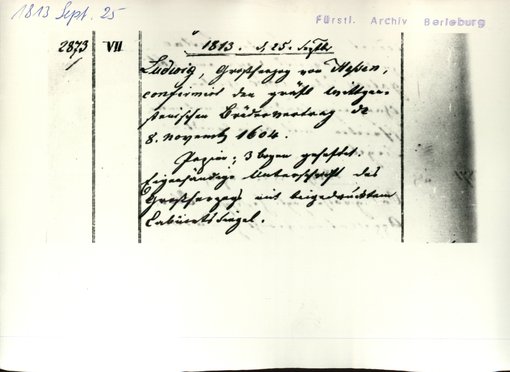 1813 Sept. 25
Fürstl. Archiv Berleburg
2873 VII 1813. d. 25. Septb.
Ludwig, Großherzog von Hessen,
confirmirt den gräfl. Wittgen-
steinischen Brüdervertrag de
8. Novemb. 1604.
Papier; 3 bogen geheftet.
Eigenhändige Unterschrift des
Großherzogs mit beigedrücktem
Cabinetssiegel.